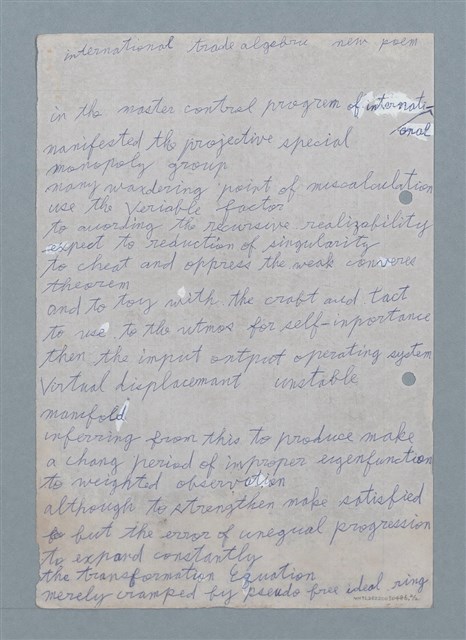 international trade algebric new poem
in the master control program of internati-
onal
manifested the projective special
monopoly group
many wandering point of miscalculation
use the Veriable factor
to acording the recursive realizability
expect to reduction of singularity
to cheat and oppress the weak converce
theorem
and to toy with the craft and tact
to use to the utmos for self-inportance
then the imput ontput operating system
Virtual displacemant unstable
manifold
inferring from this to produce make
a chang period of improper eigenfunction
to weighted observation
although to strengthen make satisfied
but the error of unequal progression
to expand constantly
the transformation Equation
merely cramped by pseudo free ideal ring